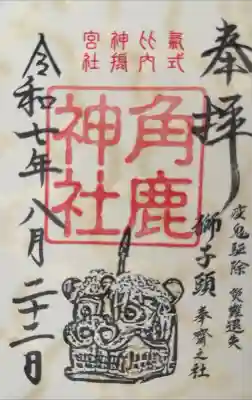 奉拝
氣比神宮
式内摂社
角鹿
神社
疫鬼駆除
獅子頭 奉齋之社
令和七年八月二十二日